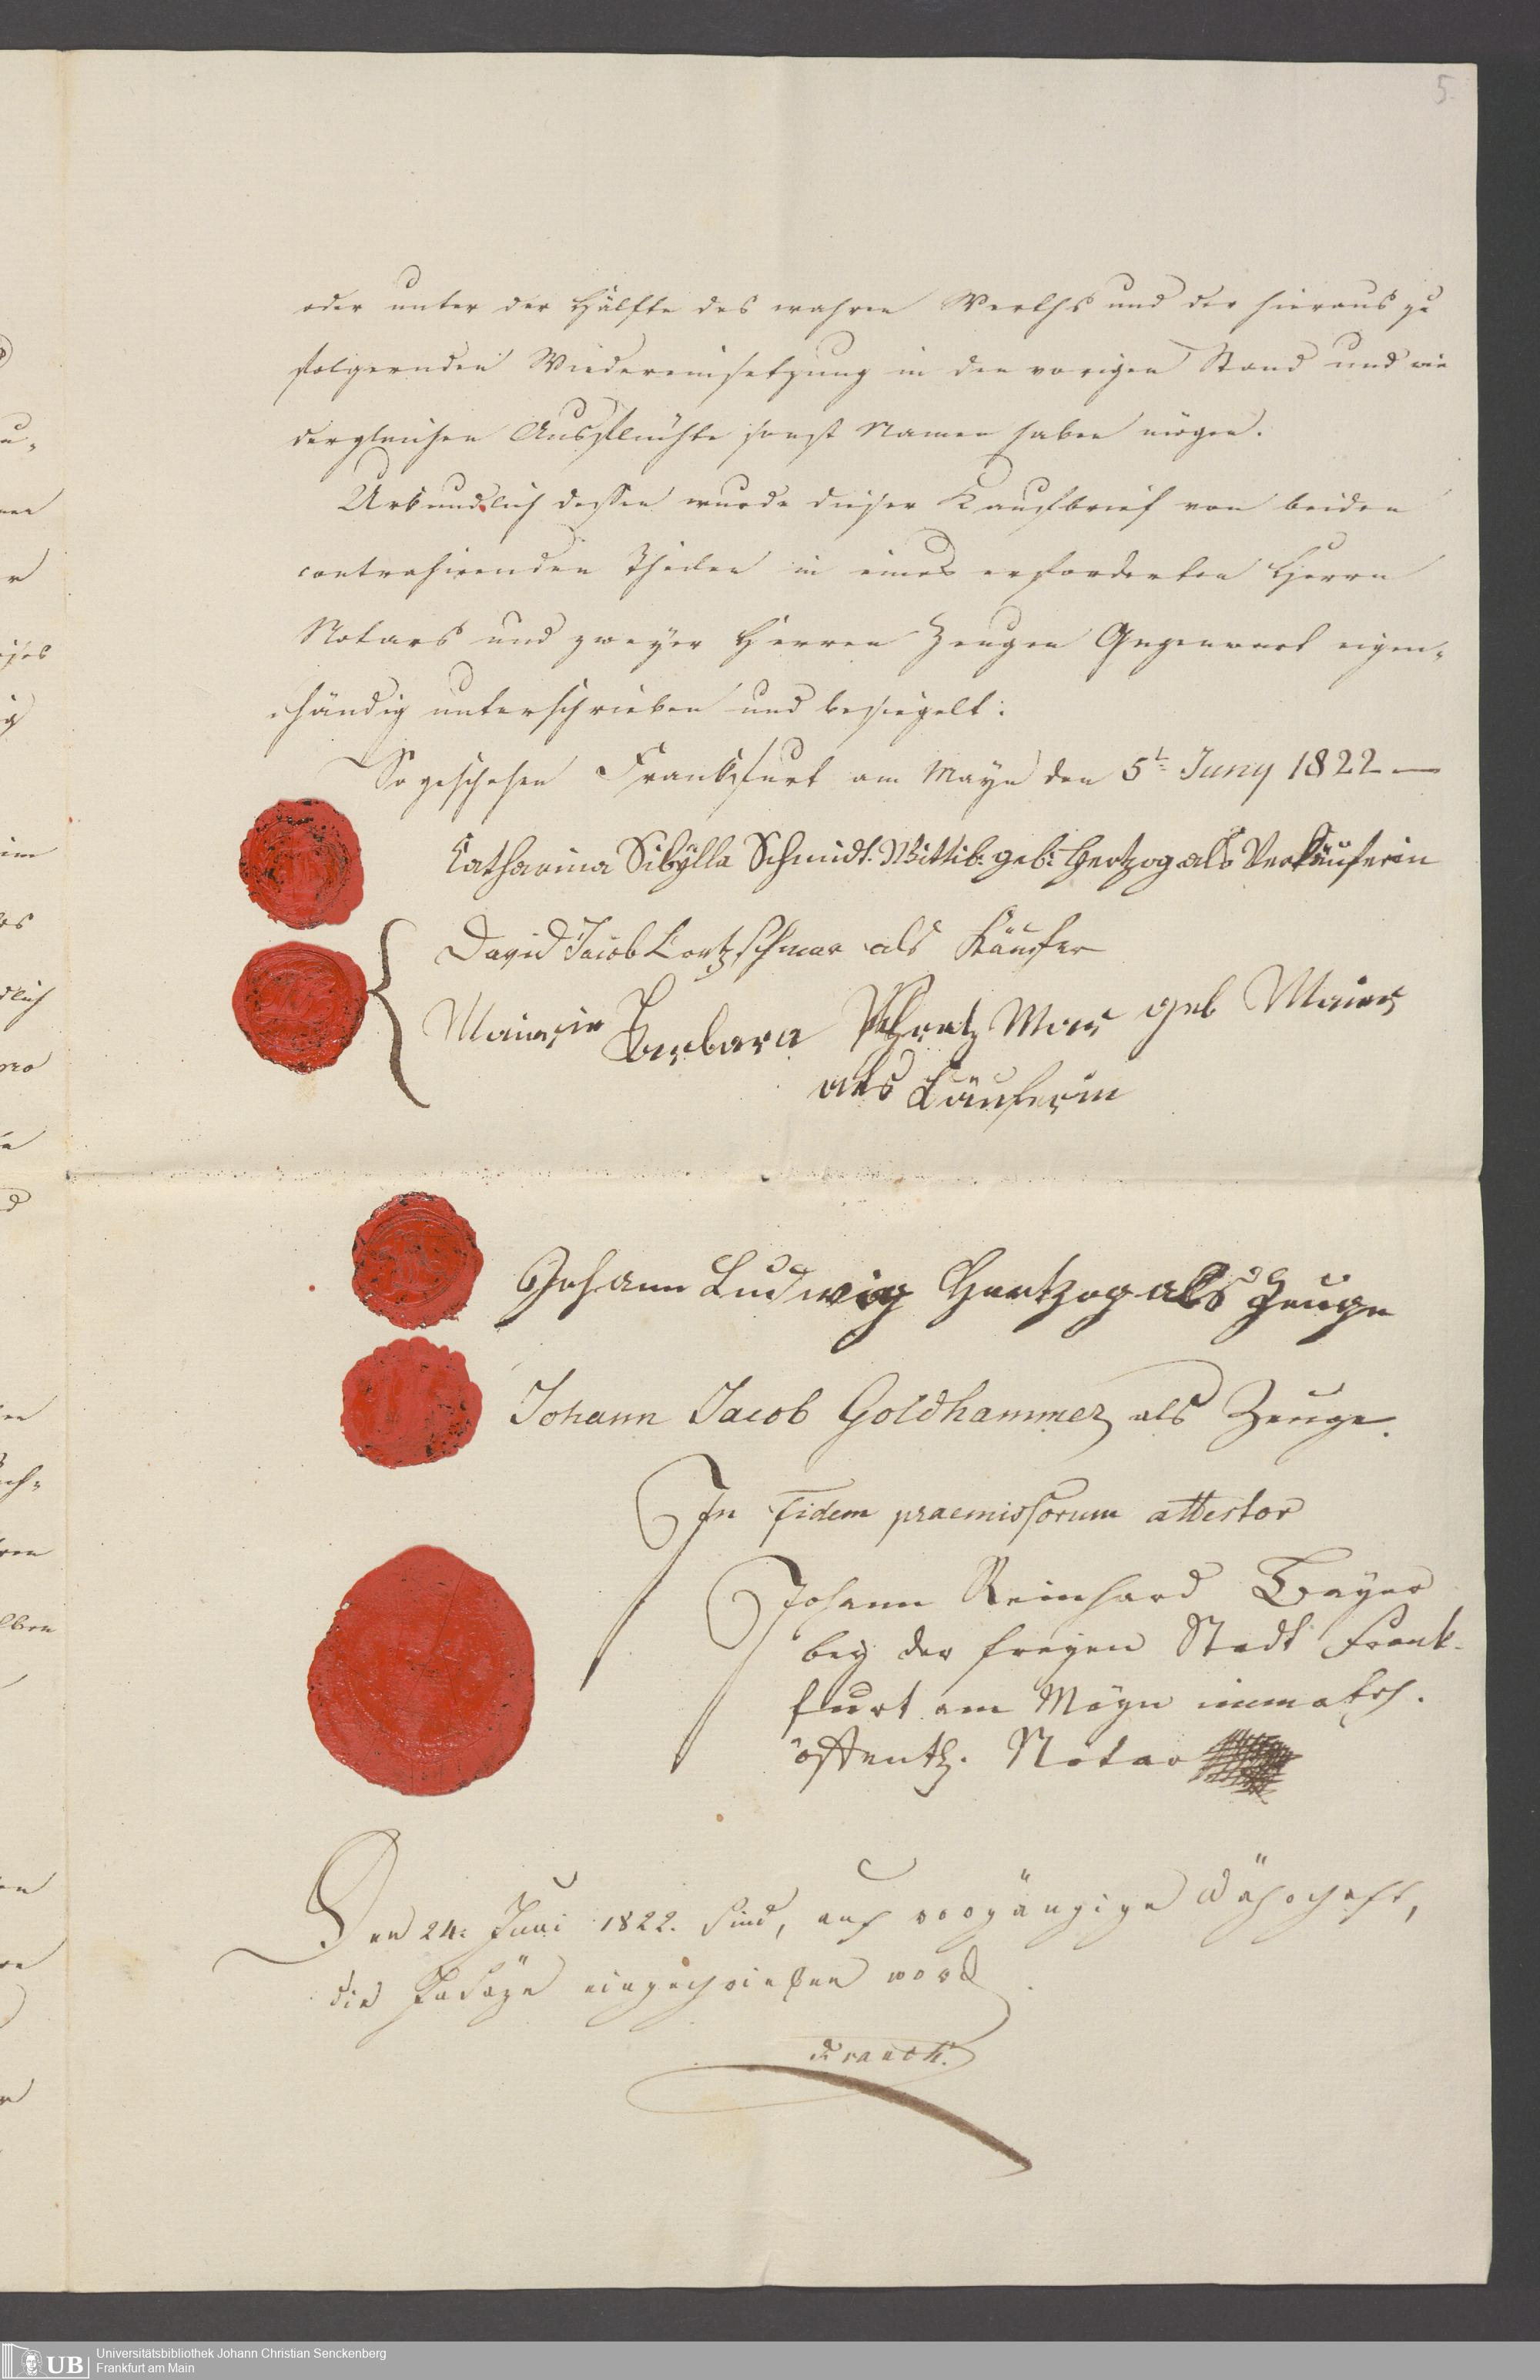 5.
oder unter der Hälfte des wahren Werths und der hieraus zu
folgernden Wiedereinsetzung in den vorigen Stand und wie
dergleichen Ausflüchte sonst Namen haben mögen.
Urkundlich dessen wurde dieser Kaufbrief von beiden
contrahirenden Theilen in eines erforderten Herrn
Notars und zweyer Herren Zeugen Gegenwart eigen-
händig unterschrieben und besiegelt.
So geschehen Frankfurt am Mayn den 5t Juny 1822
Catharina Sibylla Schmidt. Wittib. geb: Hertzog als Verkäuferin
David Jacob als Käufer
Barbara geb Maier
als Käuferin
Johann Ludwig Hertzog als Zeuge
Johann Jacob Goldhammer als Zeuge.
In fidem praemissorum attestor
Johann Reinhard Bayer
bey der freyen Stadt Frank-
furt am Mayn immatr.
öffentl. Notar
Den 24: Juni 1822. sind, auf vorgängige Währschaft,
die eingeschrieben word
Universitätsbibliothek Johann Christian Senckenberg
Frankfurt am Main
UB